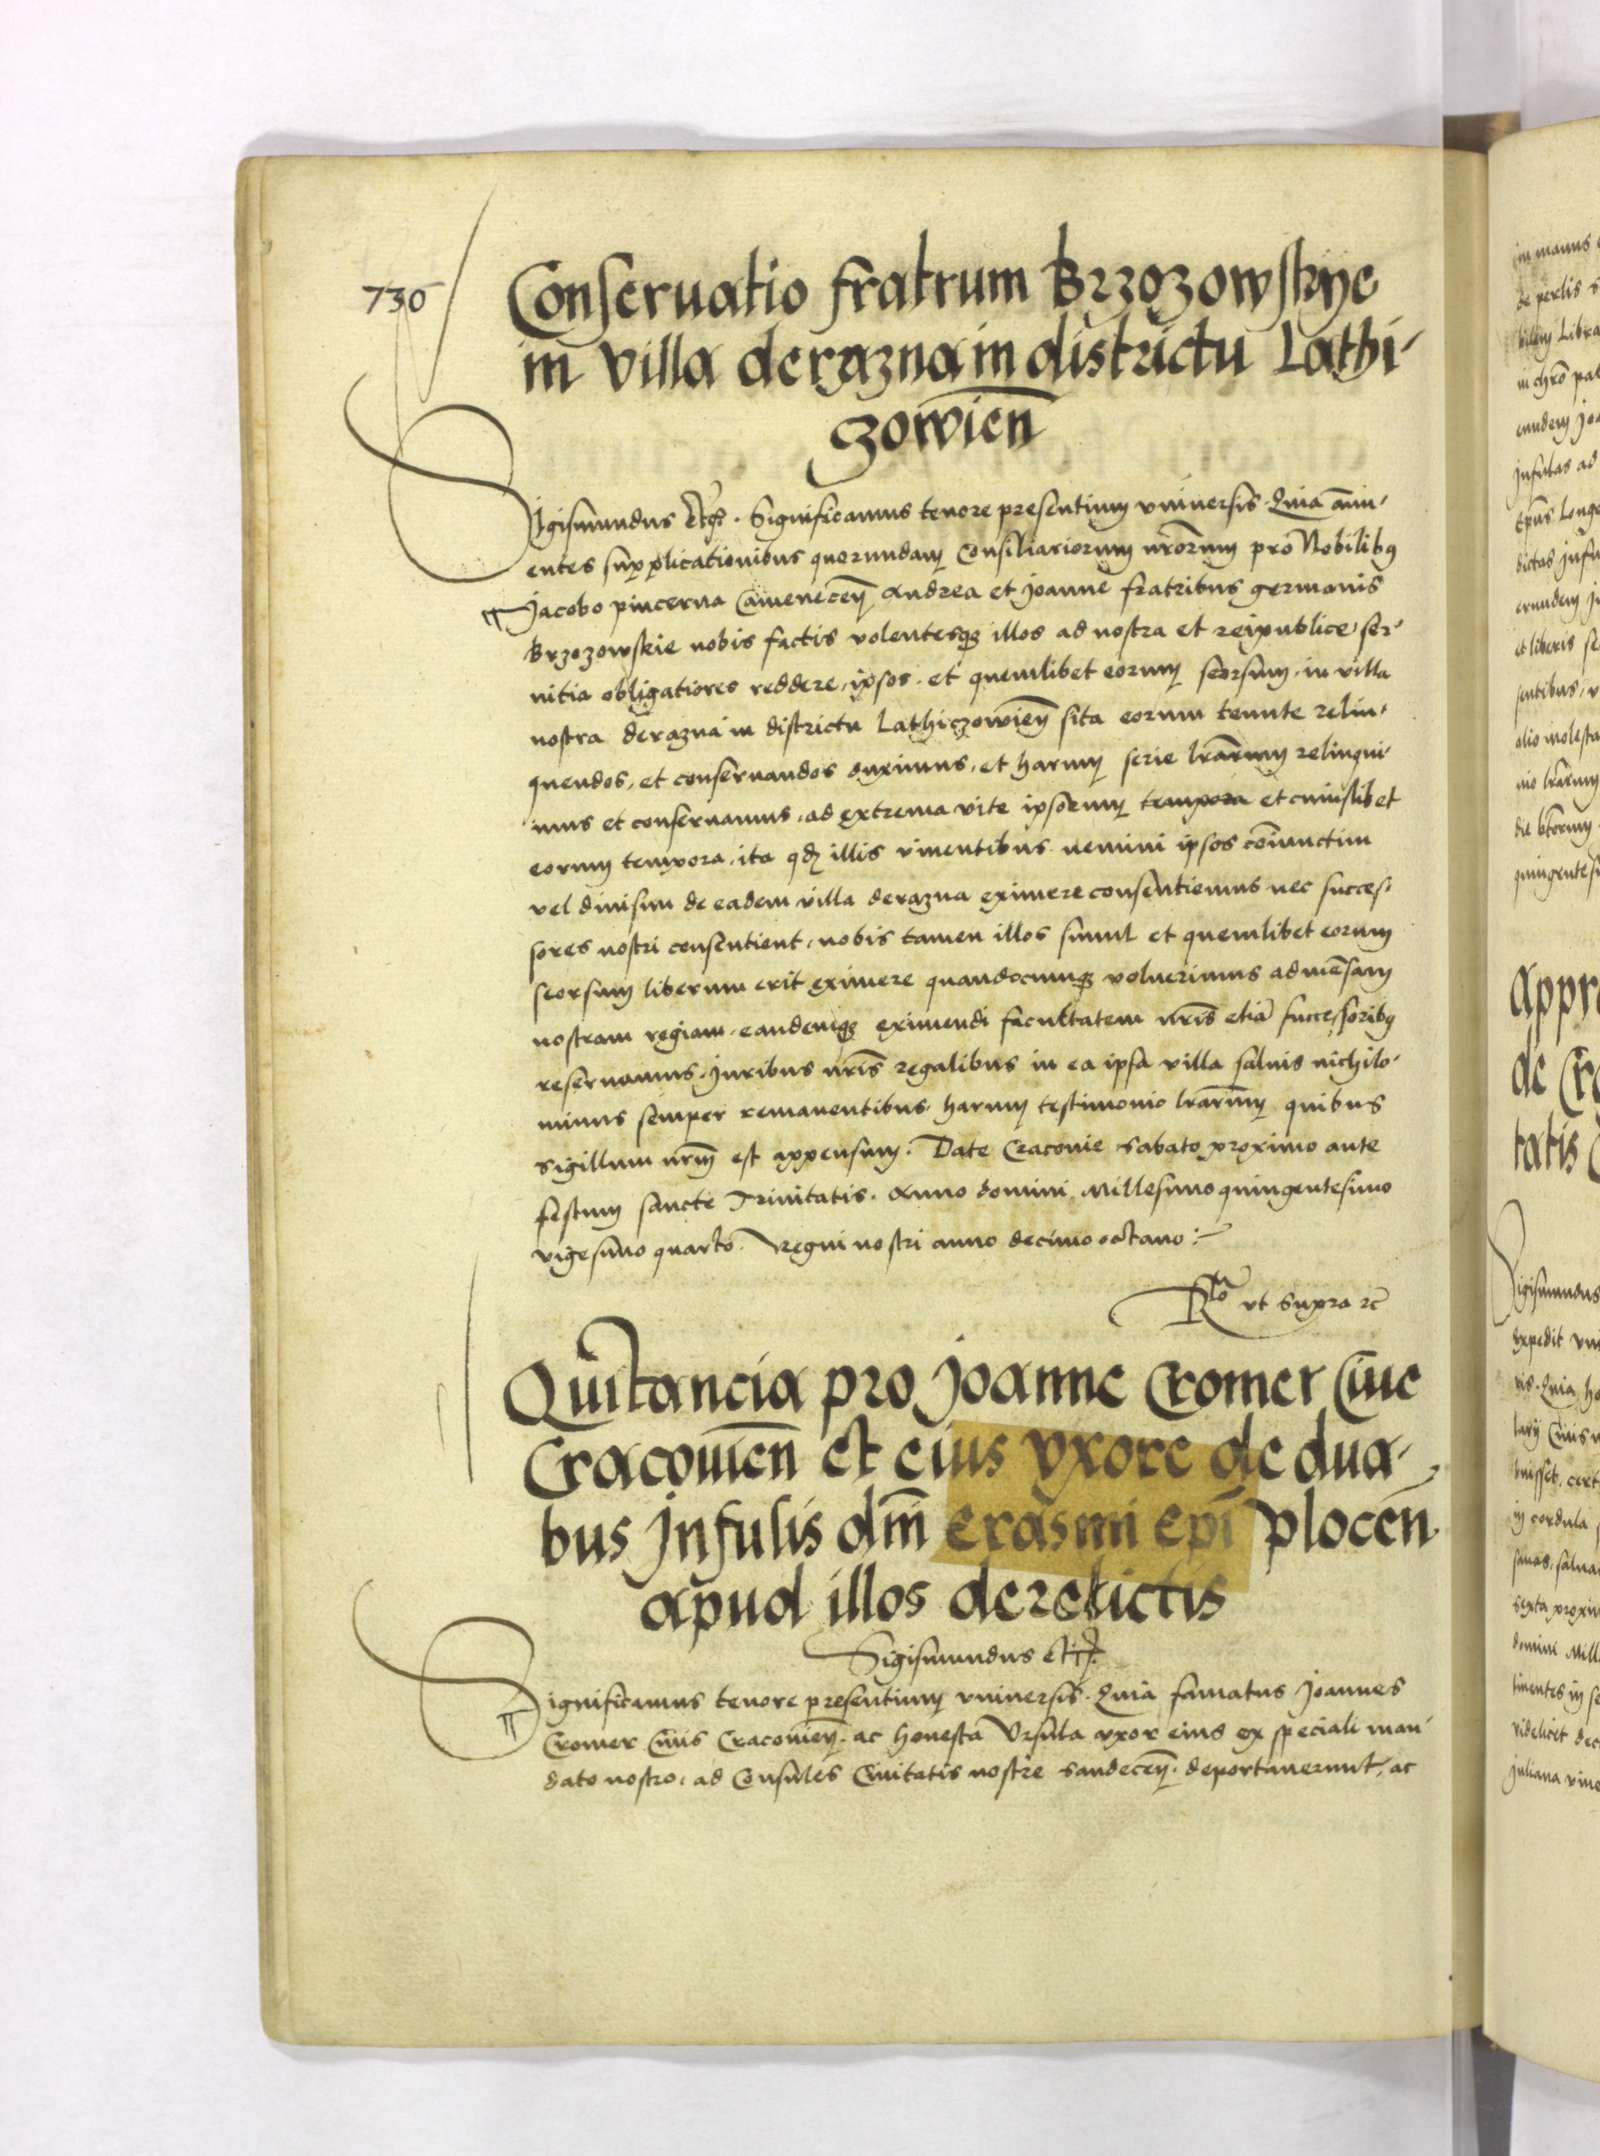 730
Conseruatio fratrum Brzozowskye
in villa derazna in districtu Lathi-
czowien̄
Sigismundus etc. Significamus tenore presentium vniuersis. Quia annu-
entes supplicationibus quorundam Consiliariorum nr̄orum pro Nobilibus
Jacobo pincerna Camenecen̄ Andrea et Joanne fratribus germanis
Brzozowskie nobis factis volentesqz illos ad nostra et reipublice ser-
uitia obligatiores reddere, ipsos et quemlibet eorum seorsum in villa
nostra derazna in districtu Lathiczowien̄ sita eorum tenute relin-
quendos, et conseruandos duximus, et harum serie lr̄arum relinqui-
mus et conseruamus, ad extrema vite ipsorum tempora et cuiuslibet
eorum tempora, ita qd illis viuentibus nemini ipsos coniunctim
vel diuisim de eadem villa derazna eximere consentiemus nec succes-
sores nostri consentient, nobis tamen illos simul et quemlibet eorum
seorsum liberum erit eximere quandocumqz voluerimus ad mensam
nostram regiam, eandemqz eximendi facultatem nr̄is etiā successoribus
reseruamus. Juribus nr̄is regalibus in ea ipsa villa saluis nichilo-
minus semper remanentibus, harum testimonio lr̄arum quibus
sigillum nr̄m est appensum. Date Cracouie sabato proximo ante
festum sancte Trinitatis. Anno domini Millesimo quingentesimo
vigesimo quarto. Regni nostri anno decimo octauo:-
Rlo ut supra rc
Quitancia pro Joanne Cromer Ciue
Cracouien̄ et eius vxore de dua-
bus Jnfulis dn̄i erasmi epī plocen̄
apud illos derelictis
Sigismundus etc.
Significamus tenore presentium vniuersis. Quia famatus Joannes
Cromer Ciuis Cracouien̄ ac honesta Vrsula vxor eius ex speciali man-
dato nostro, ad Consules Ciuitatis nostre Sandecen̄ deportauerunt, ac